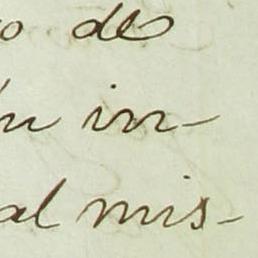 o de
n in-
al mis-